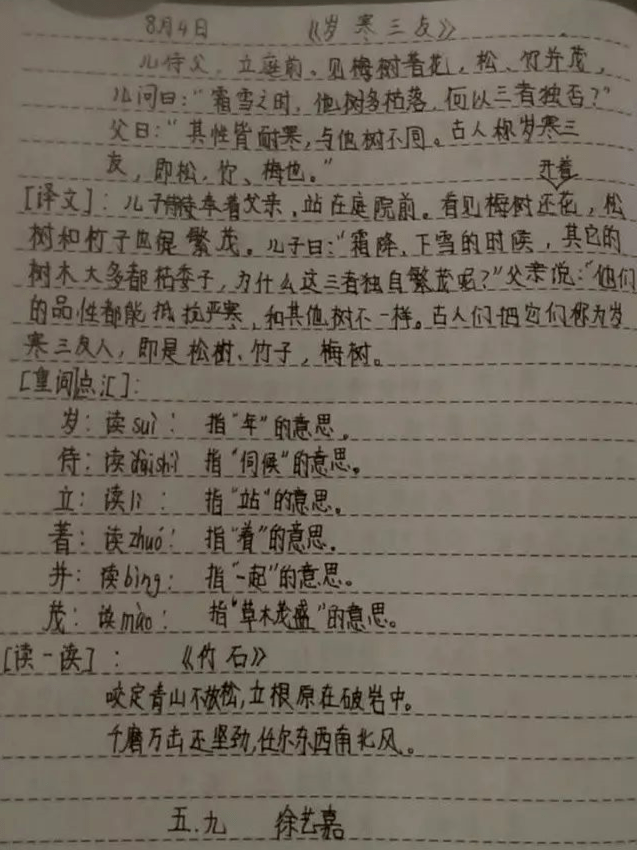 8月4日 《岁寒三友》
儿侍父,立庭前,见梅树著花,松、竹并茂,
儿问曰:“霜雪之时,他树多枯落,何以三者独否?”
父曰:“其性皆耐寒,与他树不同。古人称岁寒三
友,即松、竹、梅也。”
[译文]:儿子侍奉着父亲,站在庭院前。看见梅树还开着花,松
树和竹子也很繁茂。儿子曰:“霜降、下雪的时候,其它的
树木大多都枯委子,为什么这三者独自繁茂呢?”父亲说:“他们
的品性都能抵抗严寒,和其他树不一样。古人们把它们称为岁
寒三友人,即是松树、竹子,梅树。
[重词点汇]:
岁:读suì: 指“年”的意思。
侍:读shì 指“伺候”的意思。
立:读lì: 指“站”的意思。
著:读zhuó: 指“着”的意思。
并:读bìng: 指“一起”的意思。
茂:读mào: 指“草木茂盛”的意思。
[读一读]: 《竹石》
咬定青山不放松,立根原在破岩中。
千磨万击还坚劲,任尔东西南北风。
五.九 徐艺嘉